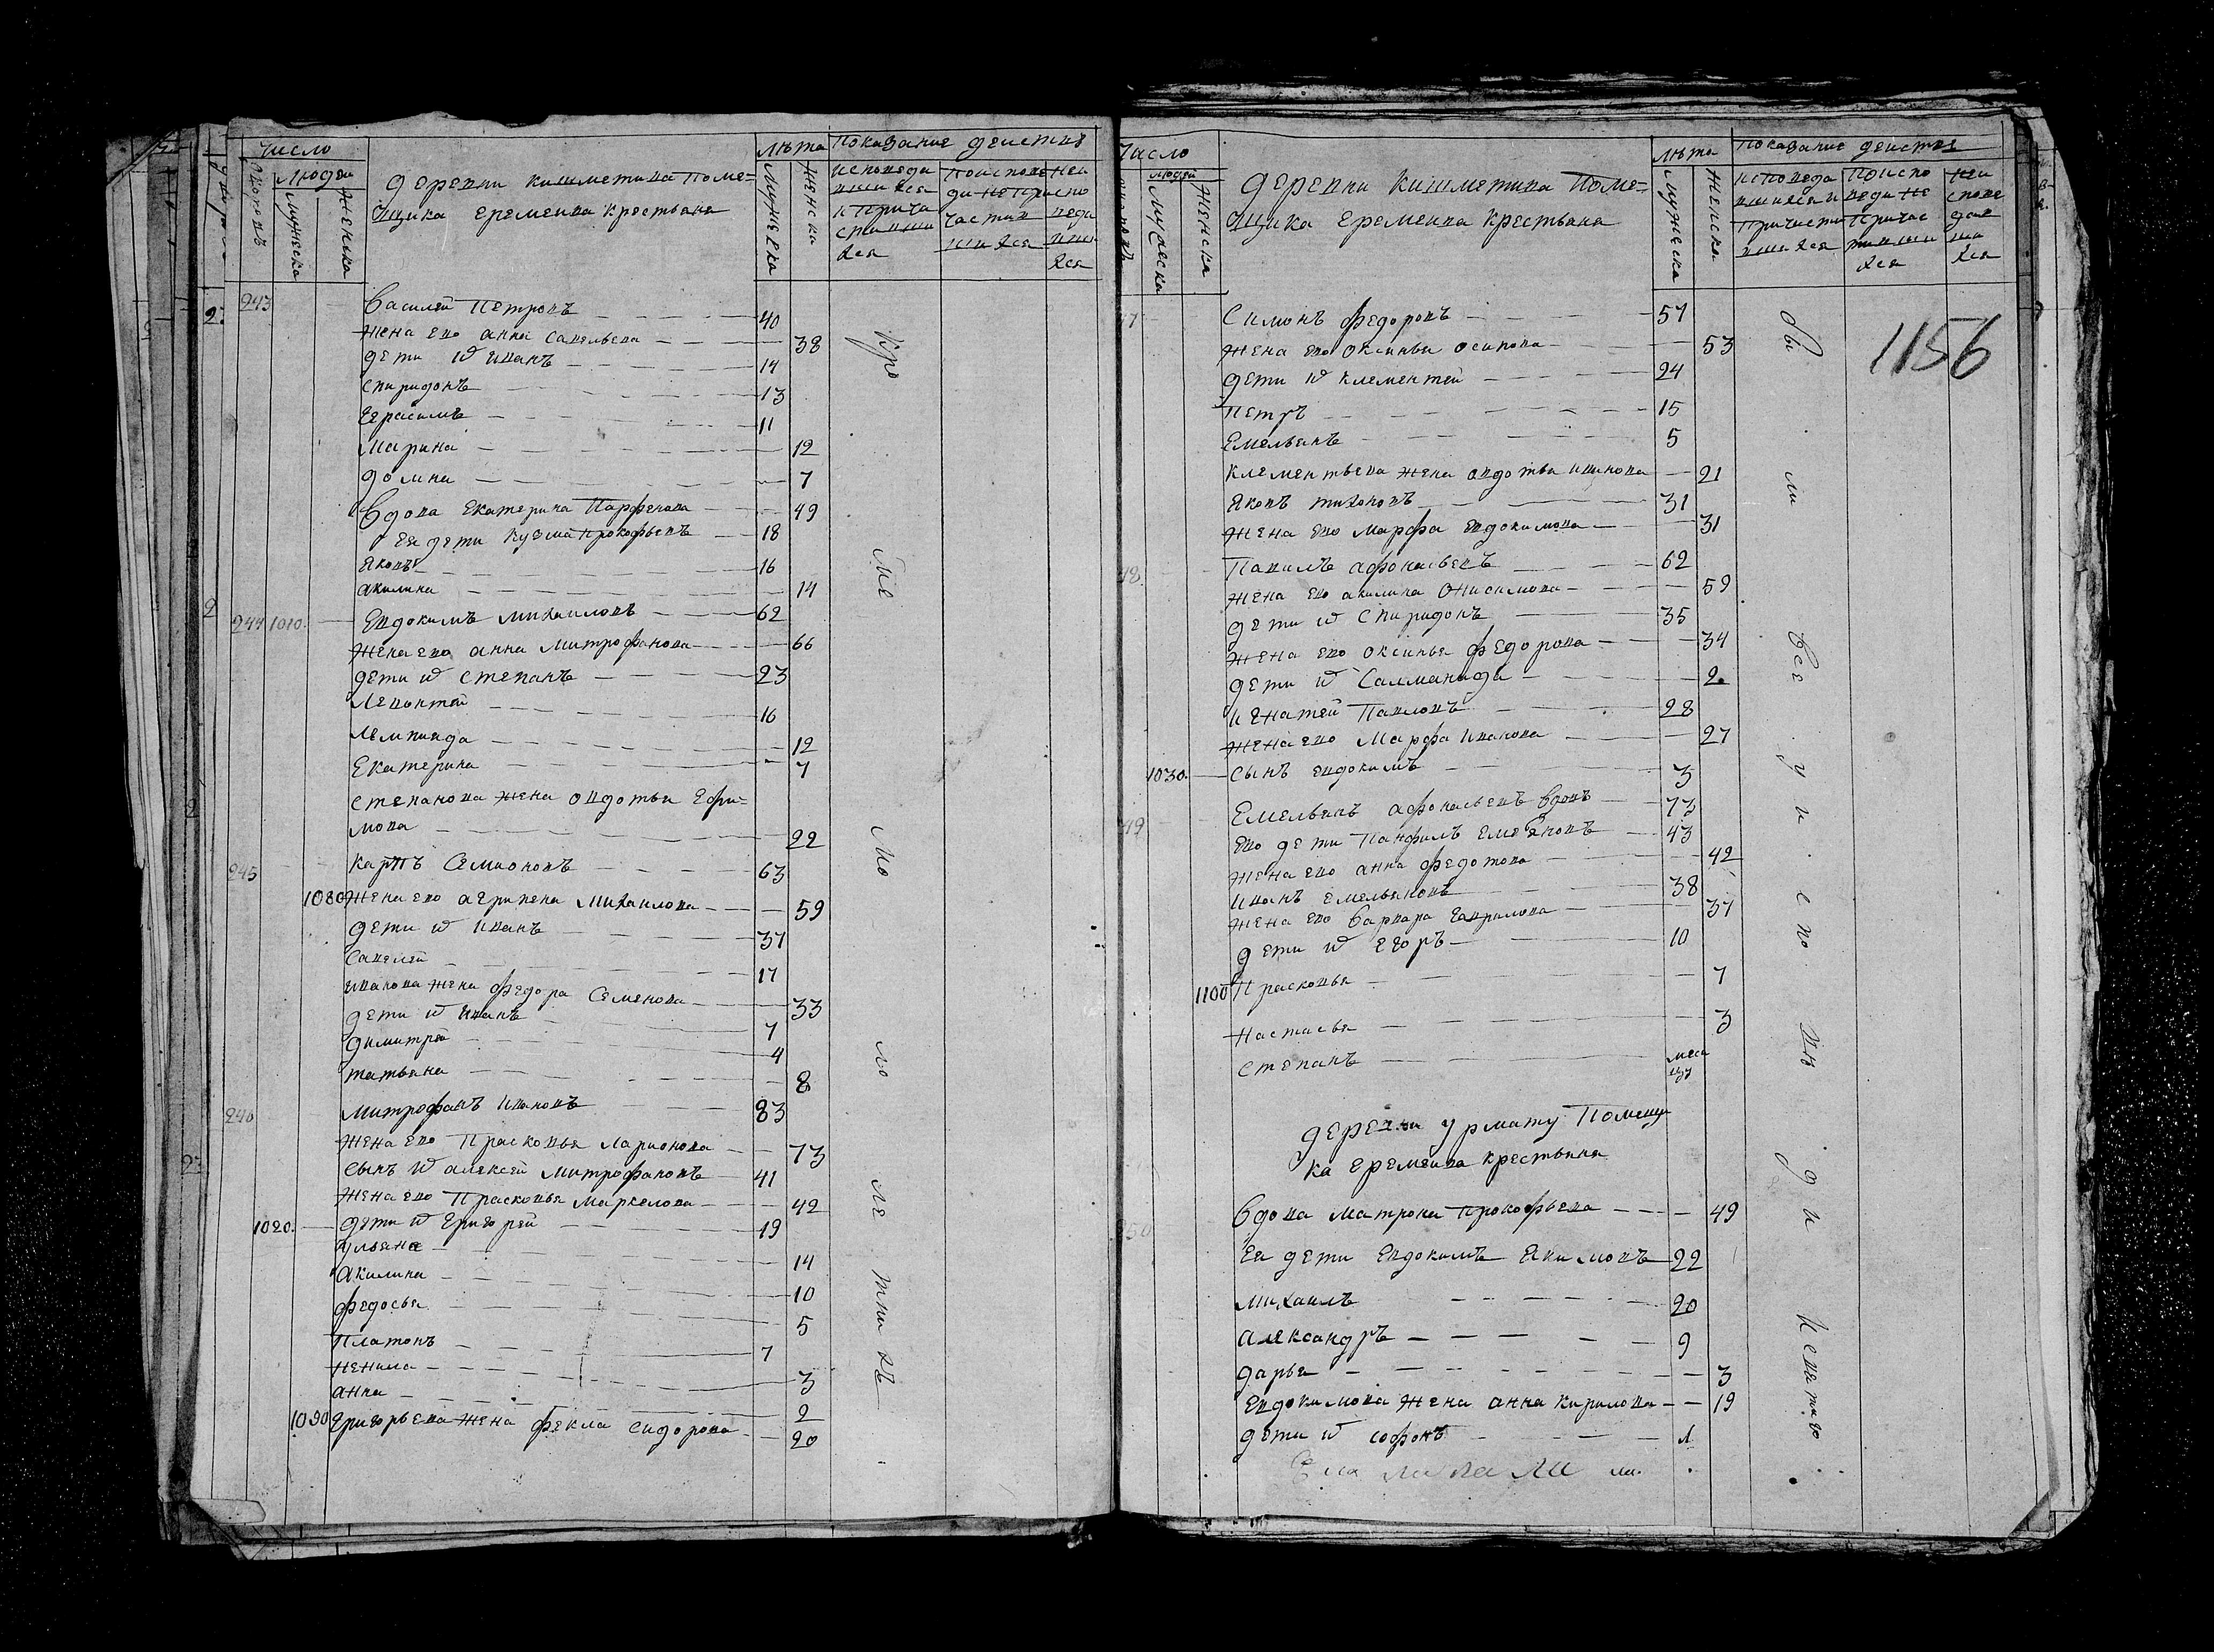 Число
Людеи
дворовъ
мужеска
женска
деревни кишметива Поме=
щика еремеива крестьяне
Лѣта
мужеска
женска
Показание деиства
исповеда
вшихся
и Прича
стивши
хся
Поисповѣ
ди неПри
частив
шихся
Неи
спо
веда
вши
хся
243
василей Петровъ 40
жена ево анна савельева 38
дети их иванъ 14
спиридонъ 13
герасимъ 11
марина 12
домна 7
вдова екатерина Парфенова 49
ея дети кузма Прокофьевъ 18
яковъ 16
акилина 14
244 1010 евдокимъ михаиловъ 62
жена ево анна митрофанова 66
дети их степанъ 23
левонтей 16
лемпияда 12
екатерина 7
степанова жена овдотья ефи=
мова 22
245 карпъ семионовъ 63
1080 жена ево агрипена михаилова 59
дети их иванъ 37
савелей 17
иванова жена федора семенова 33
дети их иванъ 7
димитрей 4
татьяна 8
246 митрофанъ ивановъ 83
жена ево Прасковья ларионова 73
сынъ их алексей митрофановъ 41
жена ево Прасковья маркелова 42
1020 дети их григорей 19
ульяна 14
акилина 10
федосья 5
Платонъ 7
ненила 3
анна 2
1090 григорьева жена фекла сидорова 20
кро
ме
мо
ло
ле
тнихъ
Число
людей
мужеска
женска
деревни кишметива Поме=
щика еремеива крестьяне
лѣта
мужеска
женска
Показание деиства
исповеда
вшияся и
Причасти
вшихся
Поиспо
веди не
Причас
тивши
хся
Неи
спове
дав
ши
хся
1156
47 симонъ федоровъ 57
жена ево оксинья осипова 53
дети их клементей 24
петръ 15
емельянъ 5
клементьева жена овдотья иванова 21
яковъ тихоновъ 31
жена ево марфа евдокимова 31
48 Павилъ афонасьевъ 62
жена ево акилина онисимова 59
дети их спиридонъ 35
жена ево оксинья федорова 34
дети их саламанида 2
игнатей Павловъ 28
жена ево марфа иванова 27
1030 сынъ евдокимъ 3
49 емельянъ афонасьевъ вдовъ 73
ево дети Панфилъ емеяновъ 43
жена ево анна федотова 42
иванъ емельяновъ 38
жена ево варвара гаврилова 37
дети их егоръ 10
1100 Прасковья 7
настасья 3
степанъ меся
цы
деревни урмату Помещи
ка еремеива крестьяне
250 вдова матрона Прокофьева 49
ея дети евдокимъ екимовъ 22
михаилъ 20
александръ 9
дарья 3
евдокимова жена анна кирилова 19
дети их софонъ 1
бы
ли
все
у
и
спо
вѣ
ди